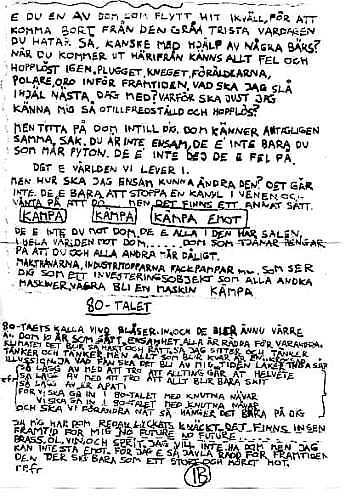 E DU EN AV DOM SOM FLYTT HIT IKVÄLL, FÖR ATT
KOMMA BORT FRÅN DEN GRÅA TRISTA VARDAGEN
DU HATAR SÅ, KANSKE MED HJÄLP AV NÅGRA BÄRS?
NÄR DU KOMMER UT HÄRIFRÅN KÄNNS ALLT FEL OCH
HOPPLÖST IGEN. PLUGGET, KNEGET, FÖRÄLDRARNA,
POLARE, ORO INFÖR FRAMTIDEN. VAD SKA JAG SLÅ
IHJÄL NÄSTA DAG MED? VARFÖR SKA JUST JAG
KÄNNA MIG SÅ OTILLFREDSTÄLLD OCH HOPPLÖS?
MEN TITTA PÅ DOM INTILL DIG, DOM KÄNNER ANTAGLIGEN
SAMMA SAK. DU ÄR INTE ENSAM, DE E' INTE BARA DU
SOM MÅR PYTON. DE E' INTE DEJ DE E FEL PÅ.
DET E VÄRLDEN VI LEVER I.
MEN HUR SKA JAG ENSAM KUNNA ÄNDRA DEN? DET GÅR
INTE. DE E BARA ATT STOPPA EN KANYL I VENEN OCH
VÄNTA PÅ ATT DÖ... MEN DET FINNS ETT ANNAT SÄTT.
KÄMPA KÄMPA KÄMPA EMOT
DE E INTE DU MOT DOM, DE E ALLA I DEN HÄR SALEN,
I HELA VÄRLDEN MOT DOM..... DOM SOM TJÄNAR PENGAR
PÅ ATT DU OCH ALLA ANDRA MÅR DÅLIGT.
MAKTHAVARNA, INDUSTRITOPPARNA FACKPAMPAR SOM SER
DIG SOM ETT INVESTERINGSOBJEKT SOM ALLA ANDRA
MASKINER, VÄGRA BLI EN MASKIN KÄMPA
80-TALET
80-TALETS KALLA VIND BLÅSER IN OCH DE BLIR ÄNNU VÄRRE
ÄN DOM 10 ÅR SOM GÅTT. ENSAMHET, ALLA ÄR RÄDDA FÖR VARANDRA
TÄNKER OCH TÄNKER MEN ALLT SOM BLIR KVAR ÄR EN
SÅ LÄGG AV MED ATT TRO ATT ALLTING GÅR ÅT HELVETE
SÅ LÄGG AV MED ATT TRO ATT ALLT BLIR BARA SKIT
SÅ LÄGG AV ER APATI
FÖR VI SKA GÅ IN I 80-TALET MED KNUTNA NÄVAR
VI SKA GÅ IN I 80-TALET MED KNUTNA NÄVAR
OCH SKA VI FÖRÄNDRA NÅT SÅ HÄNGER DET BARA PÅ DIG
JA MIG HAR DOM REDAN LYCKATS KNÄCKT DET FINNS INGEN
FRAMTID FÖR MIG NO FUTURE NO FUTURE
BRASS, ÖL, VIN, OCH SPRIT, JAG VILL INTE HA DOM MEN JAG
KAN INTE STÅ EMOT. FÖR JAG E SÅ JÄVLA RÄDD FÖR FRAMTIDEN